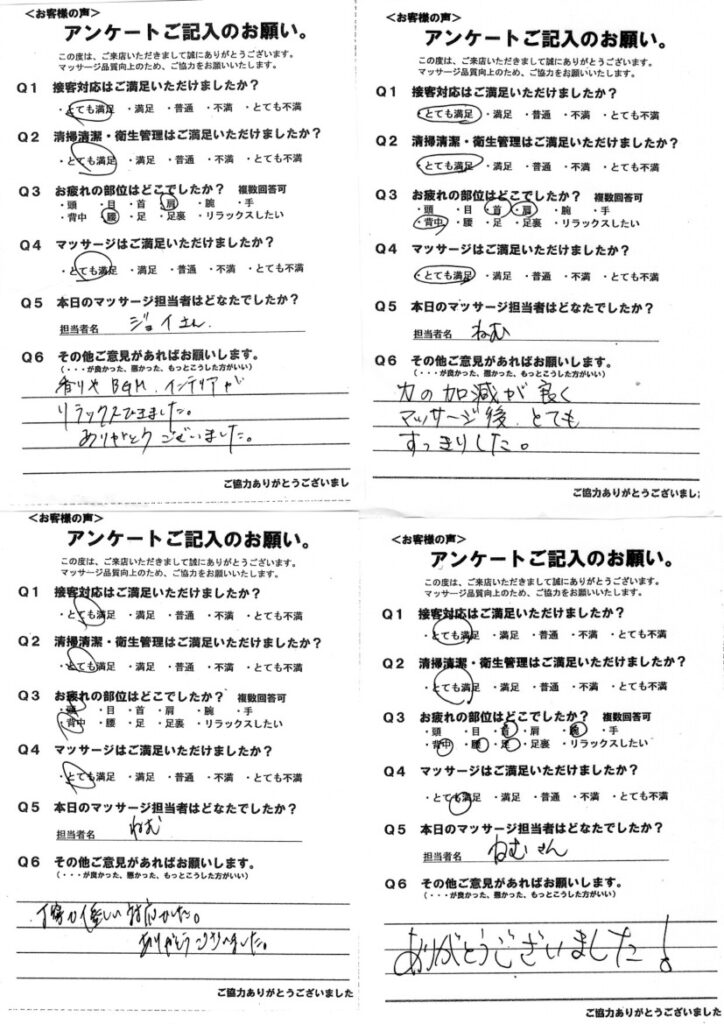 <お客様の声>
アンケートご記入のお願い。
この度は、ご来店いただきまして誠にありがとうございます。
マッサージ品質向上のため、ご協力をお願いいたします。
Q1 接客対応はご満足いただけましたか?
・とても満足 ・満足 ・普通 ・不満 ・とても不満
Q2 清掃清潔・衛生管理はご満足いただけましたか?
・とても満足 ・満足 ・普通 ・不満 ・とても不満
Q3 お疲れの部位はどこでしたか? 複数回答可
・頭 ・目 ・首 ・肩 ・腕 ・手
・背中 ・腰 ・足 ・足裏 ・リラックスしたい
Q4 マッサージはご満足いただけましたか?
・とても満足 ・満足 ・普通 ・不満 ・とても不満
Q5 本日のマッサージ担当者はどなたでしたか?
担当者名 ジョイさん
Q6 その他ご意見があればお願いします。
(・・・が良かった、悪かった、もっとこうした方がいい)
香りや BGM、インテリアが
リラックスできました。
ありがとうございました。
ご協力ありがとうございまし
<お客様の声>
アンケートご記入のお願い。
この度は、ご来店いただきまして誠にありがとうございます。
マッサージ品質向上のため、ご協力をお願いいたします。
Q1 接客対応はご満足いただけましたか?
・とても満足 ・満足 ・普通 ・不満 ・とても不満
Q2 清掃清潔・衛生管理はご満足いただけましたか?
・とても満足 ・満足 ・普通 ・不満 ・とても不満
Q3 お疲れの部位はどこでしたか? 複数回答可
・頭 ・目 ・首 ・肩 ・腕 ・手
・背中 ・腰 ・足 ・足裏 ・リラックスしたい
Q4 マッサージはご満足いただけましたか?
・とても満足 ・満足 ・普通 ・不満 ・とても不満
Q5 本日のマッサージ担当者はどなたでしたか?
担当者名 ねむ
Q6 その他ご意見があればお願いします。
(・・・が良かった、悪かった、もっとこうした方がいい)
力の加減が良く
マッサージ後、とても
すっきりした。
ご協力ありがとうございまし
<お客様の声>
アンケートご記入のお願い。
この度は、ご来店いただきまして誠にありがとうございます。
マッサージ品質向上のため、ご協力をお願いいたします。
Q1 接客対応はご満足いただけましたか?
・とても満足 ・満足 ・普通 ・不満 ・とても不満
Q2 清掃清潔・衛生管理はご満足いただけましたか?
・とても満足 ・満足 ・普通 ・不満 ・とても不満
Q3 お疲れの部位はどこでしたか? 複数回答可
・頭 ・目 ・首 ・肩 ・腕 ・手
・背中 ・腰 ・足 ・足裏 ・リラックスしたい
Q4 マッサージはご満足いただけましたか?
・とても満足 ・満足 ・普通 ・不満 ・とても不満
Q5 本日のマッサージ担当者はどなたでしたか?
担当者名 ねむ
Q6 その他ご意見があればお願いします。
(・・・が良かった、悪かった、もっとこうした方がいい)
優しい対応でした。
ありがとうございました。
ご協力ありがとうございました
<お客様の声>
アンケートご記入のお願い。
この度は、ご来店いただきまして誠にありがとうございます。
マッサージ品質向上のため、ご協力をお願いいたします。
Q1 接客対応はご満足いただけましたか?
・とても満足 ・満足 ・普通 ・不満 ・とても不満
Q2 清掃清潔・衛生管理はご満足いただけましたか?
・とても満足 ・満足 ・普通 ・不満 ・とても不満
Q3 お疲れの部位はどこでしたか? 複数回答可
・頭 ・目 ・首 ・肩 ・腕 ・手
・背中 ・腰 ・足 ・足裏 ・リラックスしたい
Q4 マッサージはご満足いただけましたか?
・とても満足 ・満足 ・普通 ・不満 ・とても不満
Q5 本日のマッサージ担当者はどなたでしたか?
担当者名 ねむさん
Q6 その他ご意見があればお願いします。
(・・・が良かった、悪かった、もっとこうした方がいい)
ありがとうございました!
ご協力ありがとうございました